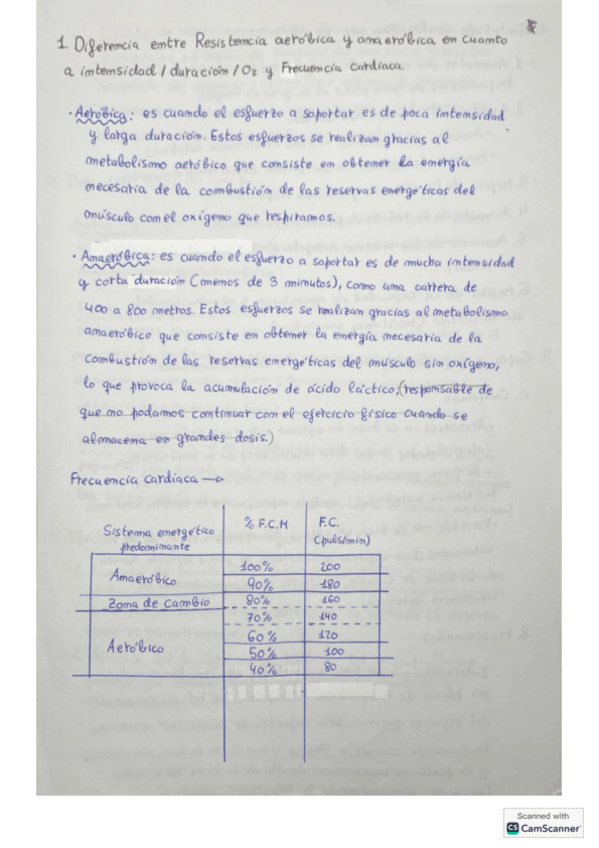 1. Diferencia entre Resistencia aeróbica y anaeróbica en cuanto
a intensidad / duración / O2 y Frecuencia cardiaca.
· Aeróbica: es cuando el esfuerzo a soportar es de poca intensidad
y larga duración. Estos esfuerzos se realizan gracias al
metabolismo aeróbico que consiste en obtener la energía
necesaria de la combustión de las reservas energéticas del
músculo con el oxígeno que respiramos.
· Anaeróbica: es cuando el esfuerzo a soportar es de mucha intensidad
y corta duración (menos de 3 minutos), como una carrera de
400 a 800 metros. Estos esfuerzos se realizan gracias al metabolismo
anaeróbico que consiste en obtener la energía necesaria de la
combustión de las reservas energéticas del músculo sin oxígeno,
lo que provoca la acumulación de ácido láctico, (responsable de
que no podamos continuar con el ejercicio físico cuando se
almacena en grandes dosis.)
Frecuencia cardiaca →
Sistema energético predominante % F.C.M F.C. (puls/min)
Anaeróbico 100% 200
90% 180
Zona de Cambio 80% 160
70% 140
Aeróbico 60% 120
50% 100
40% 80
Scanned with
CS CamScanner